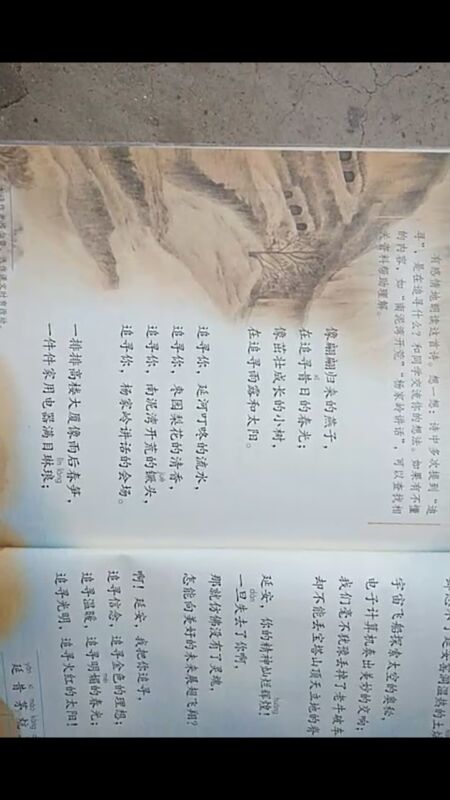 有感情地朗读这首诗。想一想：诗中多次提到“追
寻”，是在追寻什么？和同学交流你的想法。如果有不懂
的内容，如“南泥湾开荒”“杨家岭讲话”，可以查找相
关资料帮助理解。
像翩翩归来的燕子，
xī
在追寻昔日的春光；
像茁壮成长的小树，
在追寻雨露和太阳。
追寻你，延河叮咚的流水，
追寻你，枣园梨花的清香，
jué
追寻你，南泥湾开荒的镢头，
追寻你，杨家岭讲话的会场。
一排排高楼大厦像雨后春笋，
lín láng
一件件家用电器满目琳琅；
延安窑洞温热的土
宇宙飞船探索太空的奥秘，
电子计算机奏出美妙的交响；
我们毫不犹豫丢掉了老牛破车
却不能丢宝塔山顶天立地的脊
huáng
延安，你的精神灿烂辉煌！
dàn
一旦失去了你啊，
那就仿佛没有了灵魂，
怎能向美好的未来展翅飞翔？
啊！延安，我把你追寻，
追寻信念，追寻金色的理想；
追寻温暖，追寻明媚的春光；
追寻光明，追寻火红的太阳！